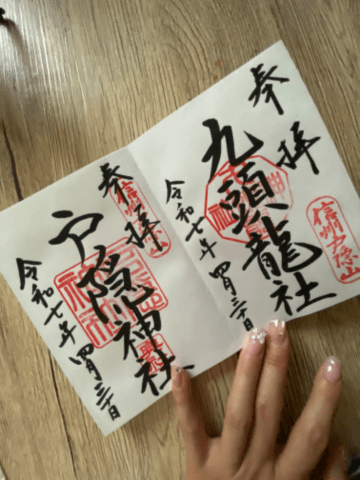 奉拝
信州戸隠山
九頭龍社
令和七年四月三十日
奉拝
信州戸隠山
戸隠神社
令和七年四月三十日